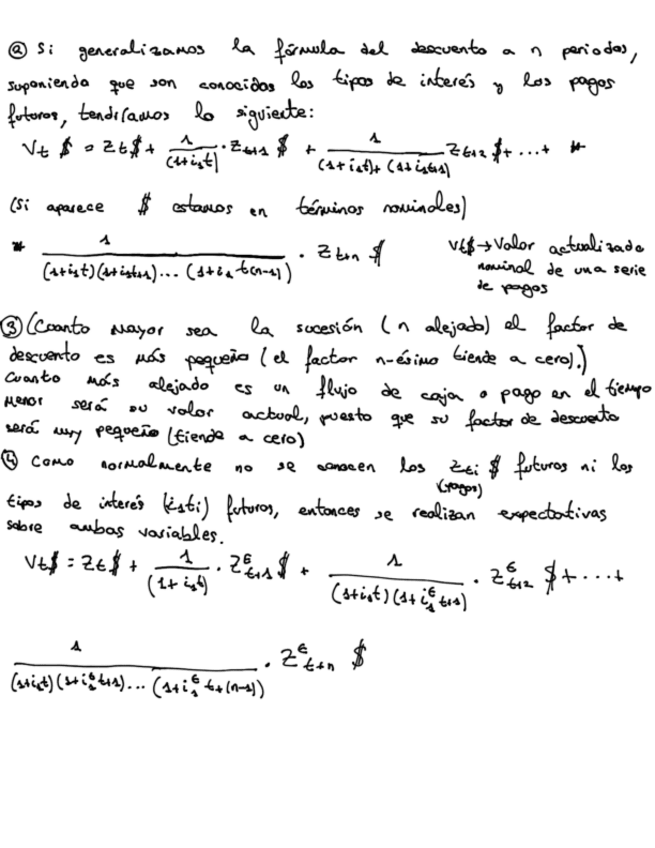 ② Si generalizamos la fórmula del descuento a n periodos,
suponiendo que son conocidos los tipos de interés y los pagos
futuros, tendríamos lo siguiente:
Vt $ = Zt $ + 1/(1+i₁t) · Zt+1 $ + 1/((1+i₁t)+(1+i₁t+1)) Zt+2 $ + ... + *
(Si aparece $ estamos en términos nominales)
* 1/((1+i₁t)(1+i₁t+1)...(1+i₁t(n-1))) · Zt+n $
Vt$ → Valor actualizado
nominal de una serie
de pagos
③ (Cuanto mayor sea la sucesión (n alejado) el factor de
descuento es más pequeño (el factor n-ésimo tiende a cero).)
Cuanto más alejado es un flujo de caja o pago en el tiempo
menor será su valor actual, puesto que su factor de descuento
será muy pequeño (tiende a cero)
④ Como normalmente no se conocen los Zti $ futuros ni los
(pagos)
tipos de interés (i₁ti) futuros, entonces se realizan expectativas
sobre ambas variables.
Vt$ = Zt$ + 1/(1+i₁t) · Z^e t+1 $ + 1/((1+i₁t)(1+i₁^e t+1)) · Z^e t+2 $ + ... +
1/((1+i₁t)(1+i₁^e t+1)...(1+i₁^e t+(n-1))) · Z^e t+n $